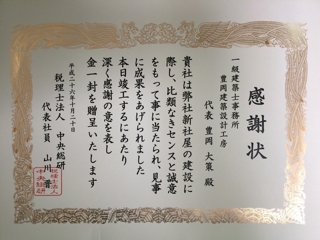 感謝状
一級建築士事務所
豊岡建築設計工房
代表 豊岡 大策 殿
貴社は弊社新社屋の建設に
際し、比類なきセンスと誠意
をもって事に当たられ、見事
に成果をあげられました
本日竣工するにあたり
深く感謝の意を表し
金一封を贈呈いたします
平成二十六年十月二十日
税理士法人 中央総研
代表社員 山川 晋